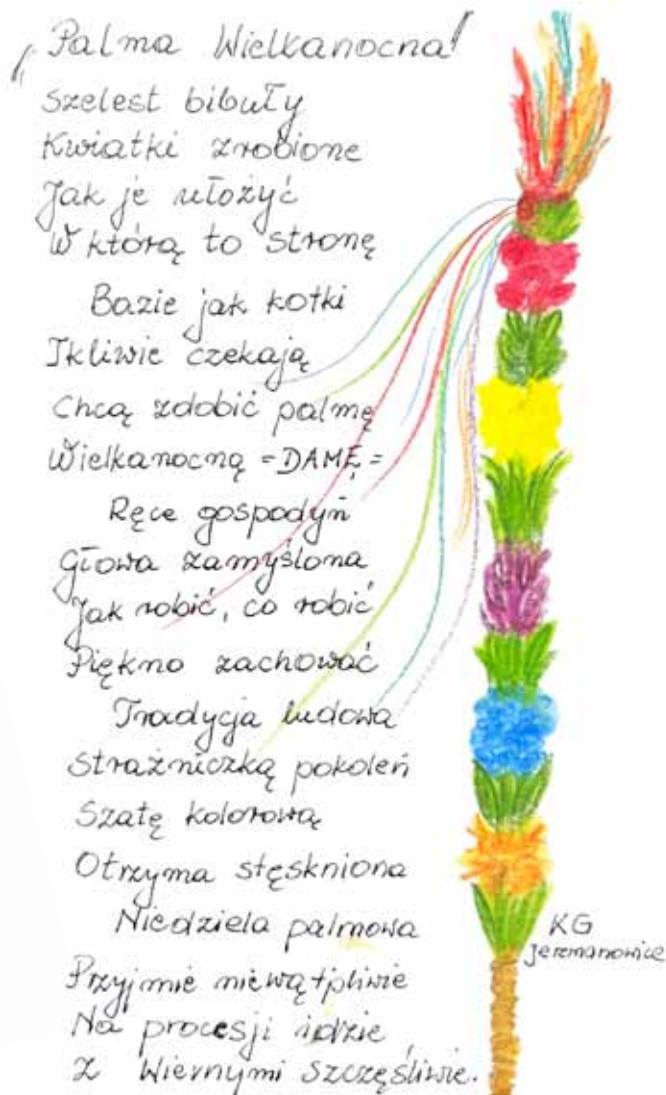 „Palma Wielkanocna"
Szelest bibuły
Kwiatki zrobione
Jak je ułożyć
W którą to stronę
Bazie jak kotki
Tkliwie czekają
Chcą zdobić palmę
Wielkanocną =DAMĘ=
Ręce gospodyń
Głowa zamyślona
Jak robić, co robić
Piękno zachować
Tradycja ludowa
Strażniczką pokoleń
Szatę kolorową
Otrzyma stęskniona
Niedziela palmowa
Przyjmie niewątpliwie
Na procesji idzie
Z Wiernymi szczęśliwie.
KG
Jerzmanowice